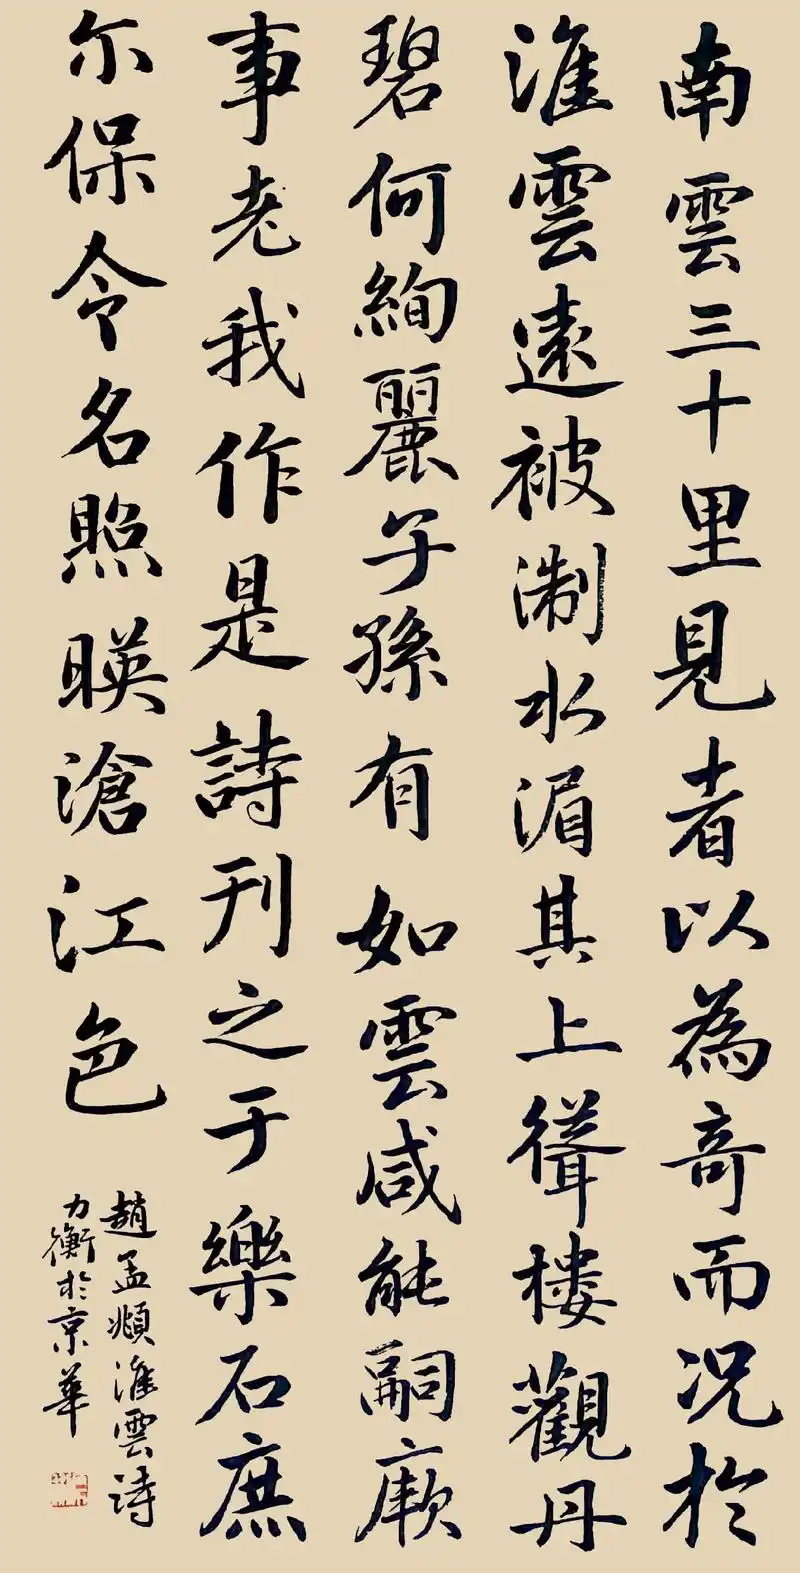 南雲三十里見者以為奇而况於
淮雲遠被淛水湄其上聳樓觀丹
碧何絢麗子孫有如雲咸能嗣厥
事老我作是詩刊之于樂石庶
尓保令名照暎滄江色
趙孟頫淮雲詩
力衡於京華